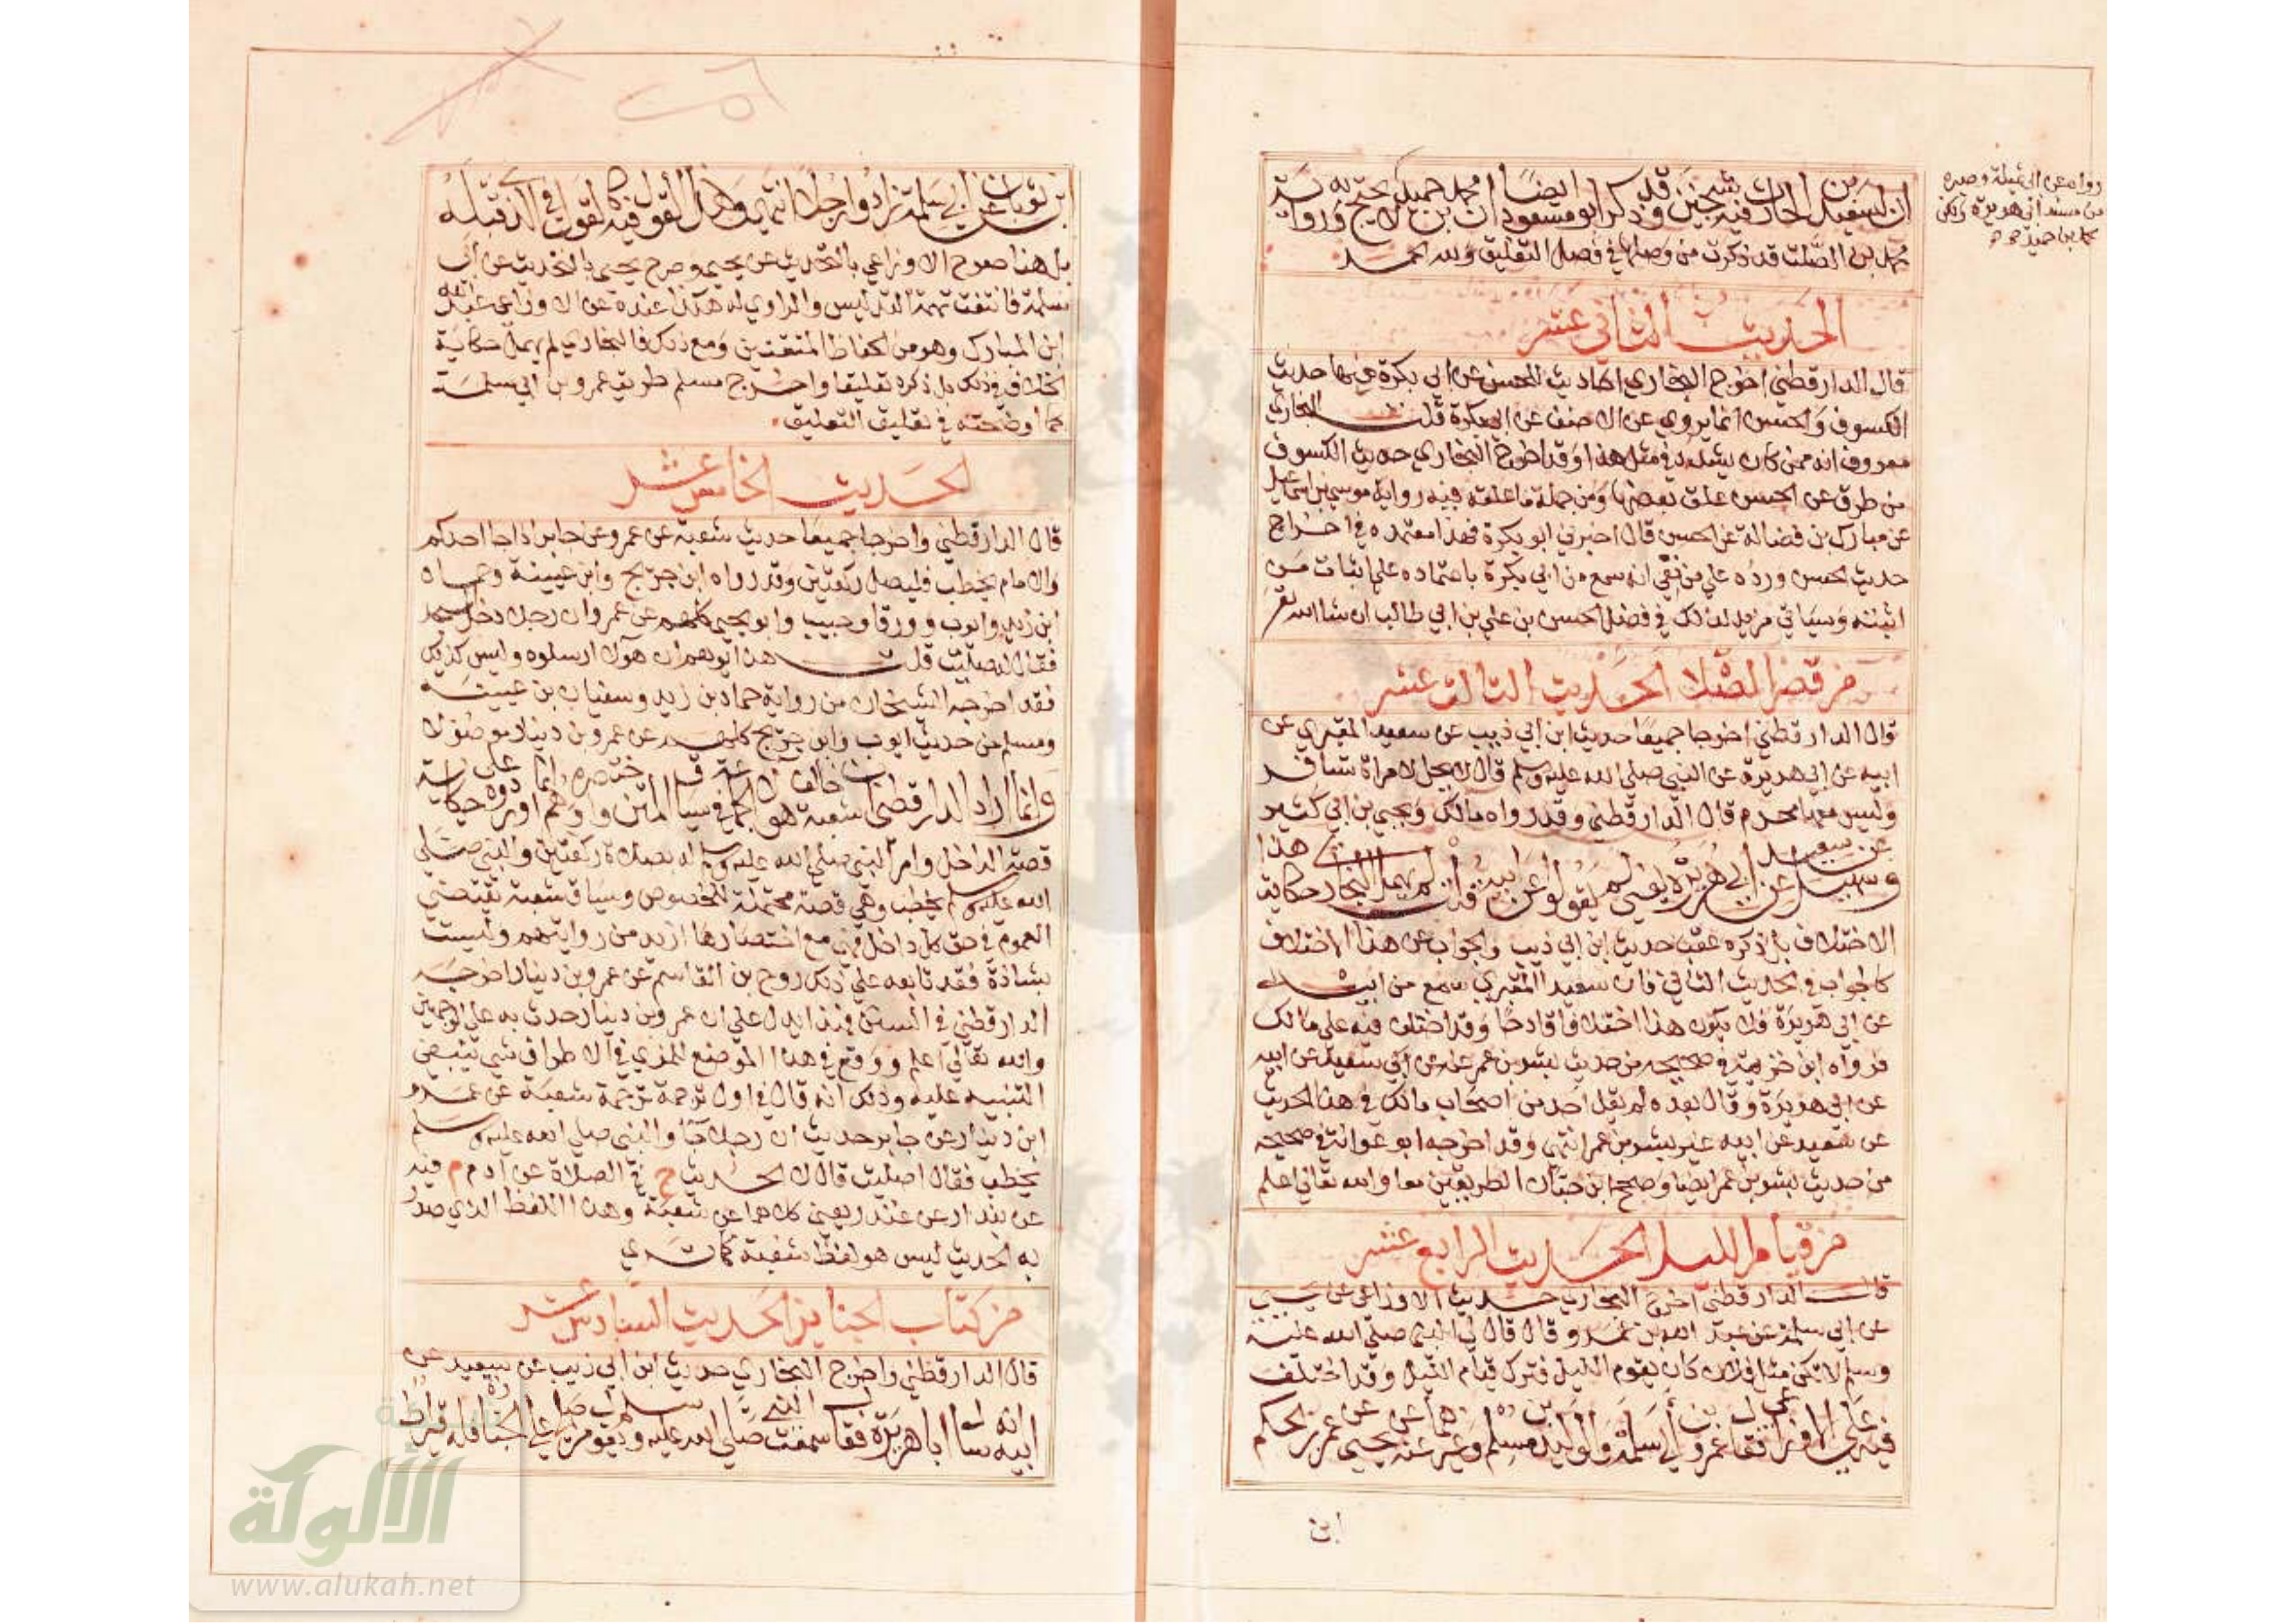 ان لسعيد بن الحارث فيه شيخين وقد ذكر ابو مسعود ايضا ان محمد بن حميد لا يحتج به ورواية
محمد بن الصلت قد ذكرت من وصلها في فصل التعليق ولله الحمد
رواه عن ابي تميلة وصيره
من مسند ابي هريرة ولكن
محمد بن حميد
الحديث الثاني عشر
قال الدارقطني اخرج البخاري احاديث للحسن عن ابي بكرة منها حديث
الكسوف والحسن انما يروي عن الاحنف عن ابي بكرة قلت البخاري
معروف انه ممن كان يشدد في مثل هذا وقد اخرج البخاري حديث الكسوف
من طرق عن الحسن علق بعضها ومن جملة ما علقه فيه رواية موسى بن اسماعيل
عن مبارك بن فضالة عن الحسن قال اخبرني ابو بكرة فهذا معتمده في اخراج
حديث الحسن ورده علي من نفي انه سمع من ابي بكرة باعتماده علي اثبات من
اثبته وسياتي مزيد لذلك في فضل الحسن بن علي بن ابي طالب ان شا الله تع
من قصر الصلاة الحديث الثالث عشر
قال الدارقطني اخرجا جميعا حديث ابن ابي ذيب عن سعيد المقبري عن
ابيه عن ابي هريرة عن النبي صلي الله عليه وسلم قال لا يحل لامراة تسافر
وليس معها محرم قال الدارقطني وقد رواه مالك ويحيي بن ابي كثير
وسهيل عن سعيد عن ابي هريرة يعني لم يقولوا عن ابيه قلت لم يهمل البخاري حكاية هذا
الاختلاف بل ذكره عقب حديث ابن ابي ذيب والجواب عن هذا الاختلاف
كالجواب في الحديث الثاني فان سعيد المقبري سمع من ابيه
عن ابي هريرة فلا يكون هذا اختلافا قادحا وقد اختلف فيه علي مالك
فرواه ابن خزيمة في صحيحه من حديث بشر بن عمر عنه عن سعيد عن ابيه
عن ابي هريرة وقال بعده لم يقل احد من اصحاب مالك في هذا الحديث
عن سعيد عن ابيه غير بشر بن عمر انتهى وقد اخرجه ابو عوانة في صحيحه
من حديث بشر بن عمر ايضا وصحح ابن حبان الطريقين معا والله تعالي اعلم
من قيام الليل الحديث الرابع عشر
قال الدارقطني اخرج البخاري حديث الاوزاعي عن يحيي
عن ابي سلمة عن عبد الله بن عمرو قال قال لي النبي صلي الله عليه
وسلم لا تكن مثل فلان كان يقوم الليل فترك قيام الليل وقد اختلف
فيه علي الاوزاعي فقال عمرو بن ابي سلمة والوليد بن مسلم وغيرهما عنه عن يحيي عن عمر بن الحكم
ابن
ابن ثوبان عن ابي سلمة زادوا رجلا انتهى وهذا القول فيه كالقول في الذي قبله
بل هذا صرح الاوزاعي بالتحديث عن يحيي وصرح يحيي بالتحديث عن ابي
سلمة فانتفت تهمة التدليس والراوي له هكذا عنده عن الاوزاعي عبد الله
ابن المبارك وهو من الحفاظ المتقنين ومع ذلك فالبخاري لم يهمل حكاية
الخلاف في ذلك بل ذكره تعليقا واخرج مسلم طريق عمرو بن ابي سلمة
كما اوضحته في تغليق التعليق
الحديث الخامس عشر
قال الدارقطني واخرجا جميعا حديث شعبة عن عمرو عن جابر اذا جا احدكم
والامام يخطب فليصل ركعتين وقد رواه ابن جريج وابن عيينة وحماد
ابن زيد وايوب وورقا وحبيب وابو يحيي كلهم عن عمرو ان رجلا دخل المسجد
فقال له صليت قلت هذا يوهم ان هولا ارسلوه وليس كذلك
فقد اخرجه الشيخان من رواية حماد بن زيد وسفيان بن عيينة
ومسلم من حديث ايوب وابن جريج كلهم عن عمرو بن دينار موصولا
وانما اراد الدارقطني ان شعبة خالف هولا الجماعة في سياق المتن واختصره وهم انما اوردوه علي حكاية
قصة الداخل وامر النبي صلي الله عليه وسلم له بصلاة ركعتين والنبي صلي
الله عليه وسلم يخطب وهي قصة محتملة للخصوص وسياق شعبة يقتضي
العموم في حق كل داخل فهي مع اختصارها ازيد من روايتهم وليست
بشاذة فقد تابعه علي ذلك روح بن القاسم عن عمرو بن دينار اخرجه
الدارقطني في السنن فهذا يدل علي ان عمرو بن دينار حدث به علي الوجهين
والله تعالي اعلم ووقع في هذا الموضع للمزي في الاطراف شي ينبغي
التنبيه عليه وذلك انه قال في اول ترجمة ترجمة شعبة عن عمرو
ابن دينار عن جابر حديث ان رجلا جا والنبي صلي الله عليه وسلم
يخطب فقال اصليت قال لا الحديث خ في الصلاة عن ادم م فيه
عن بندار عن غندر يعني كلاهما عن شعبة وهذا اللفظ الذي صدر
به الحديث ليس هو لفظ شعبة كما ترى
من كتاب الجنايز الحديث السادس عشر
قال الدارقطني واخرج البخاري حديث ابن ابي ذيب عن سعيد عن
ابيه انه سال ابا هريرة فقال سمعت النبي صلي الله عليه وسلم يقول من صلي علي الجنازة فله قيراط
الألوكة
www.alukah.net